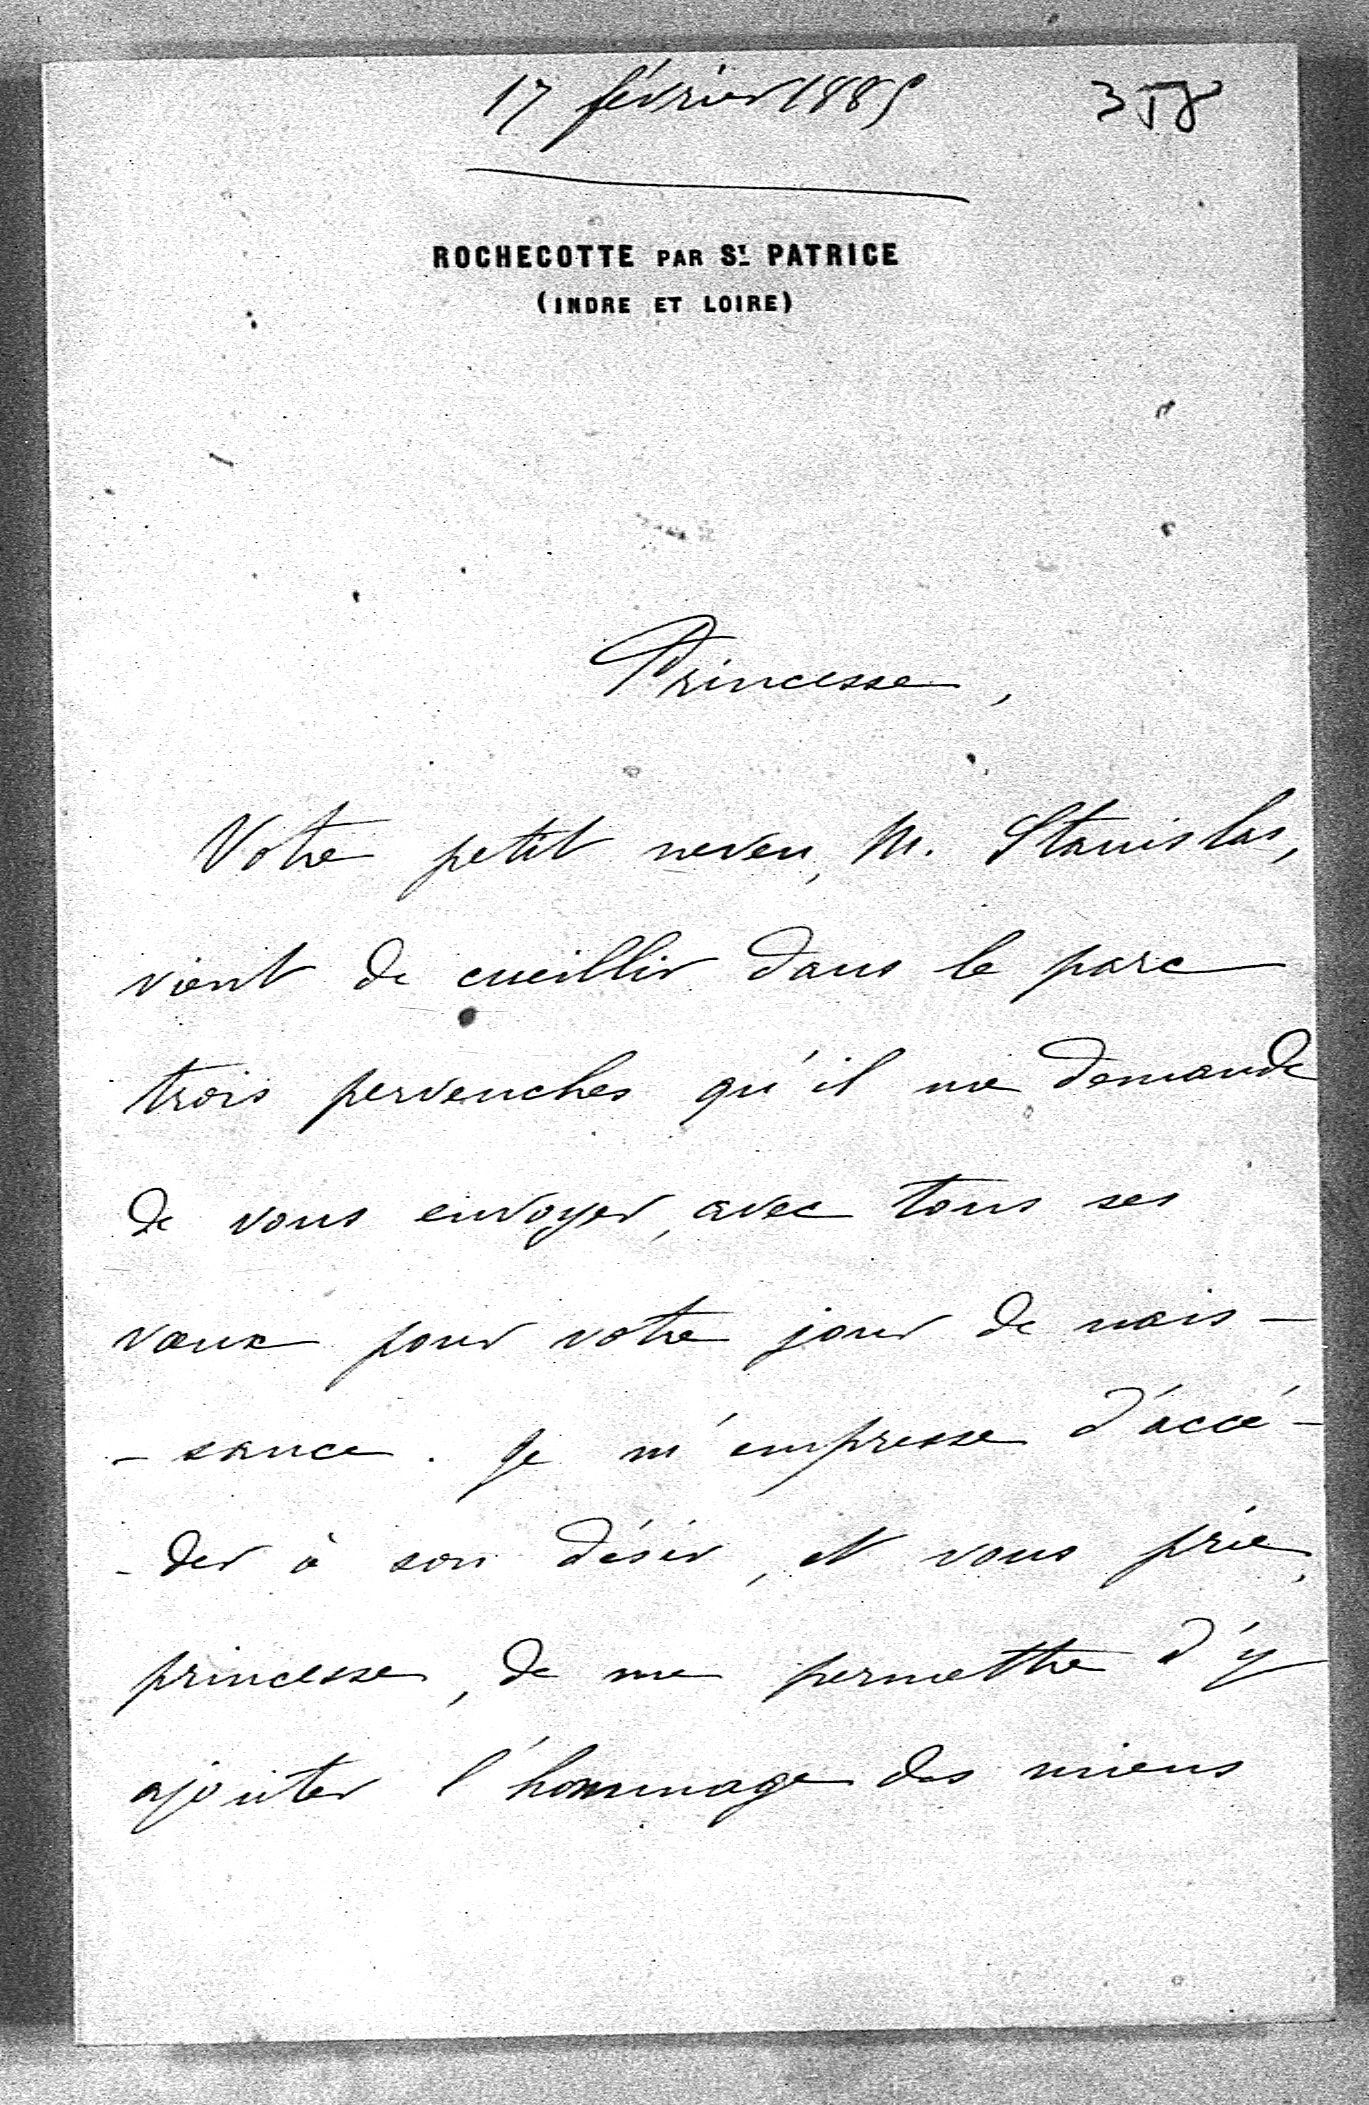 17 février 1885
358
ROCHECOTTE PAR ST PATRICE
(INDRE ET LOIRE)
Princesse,
Votre petit neveu, M. Stanislas,
vient de cueillir dans le parc
trois pervenches qu'il me demande
de vous envoyer, avec tous ses
vœux pour votre jour de nais-
-sance. Je m'empresse d'accé-
-der à son désir, et vous prie,
princesse, de me permettre d'y
ajouter l'hommage des miens